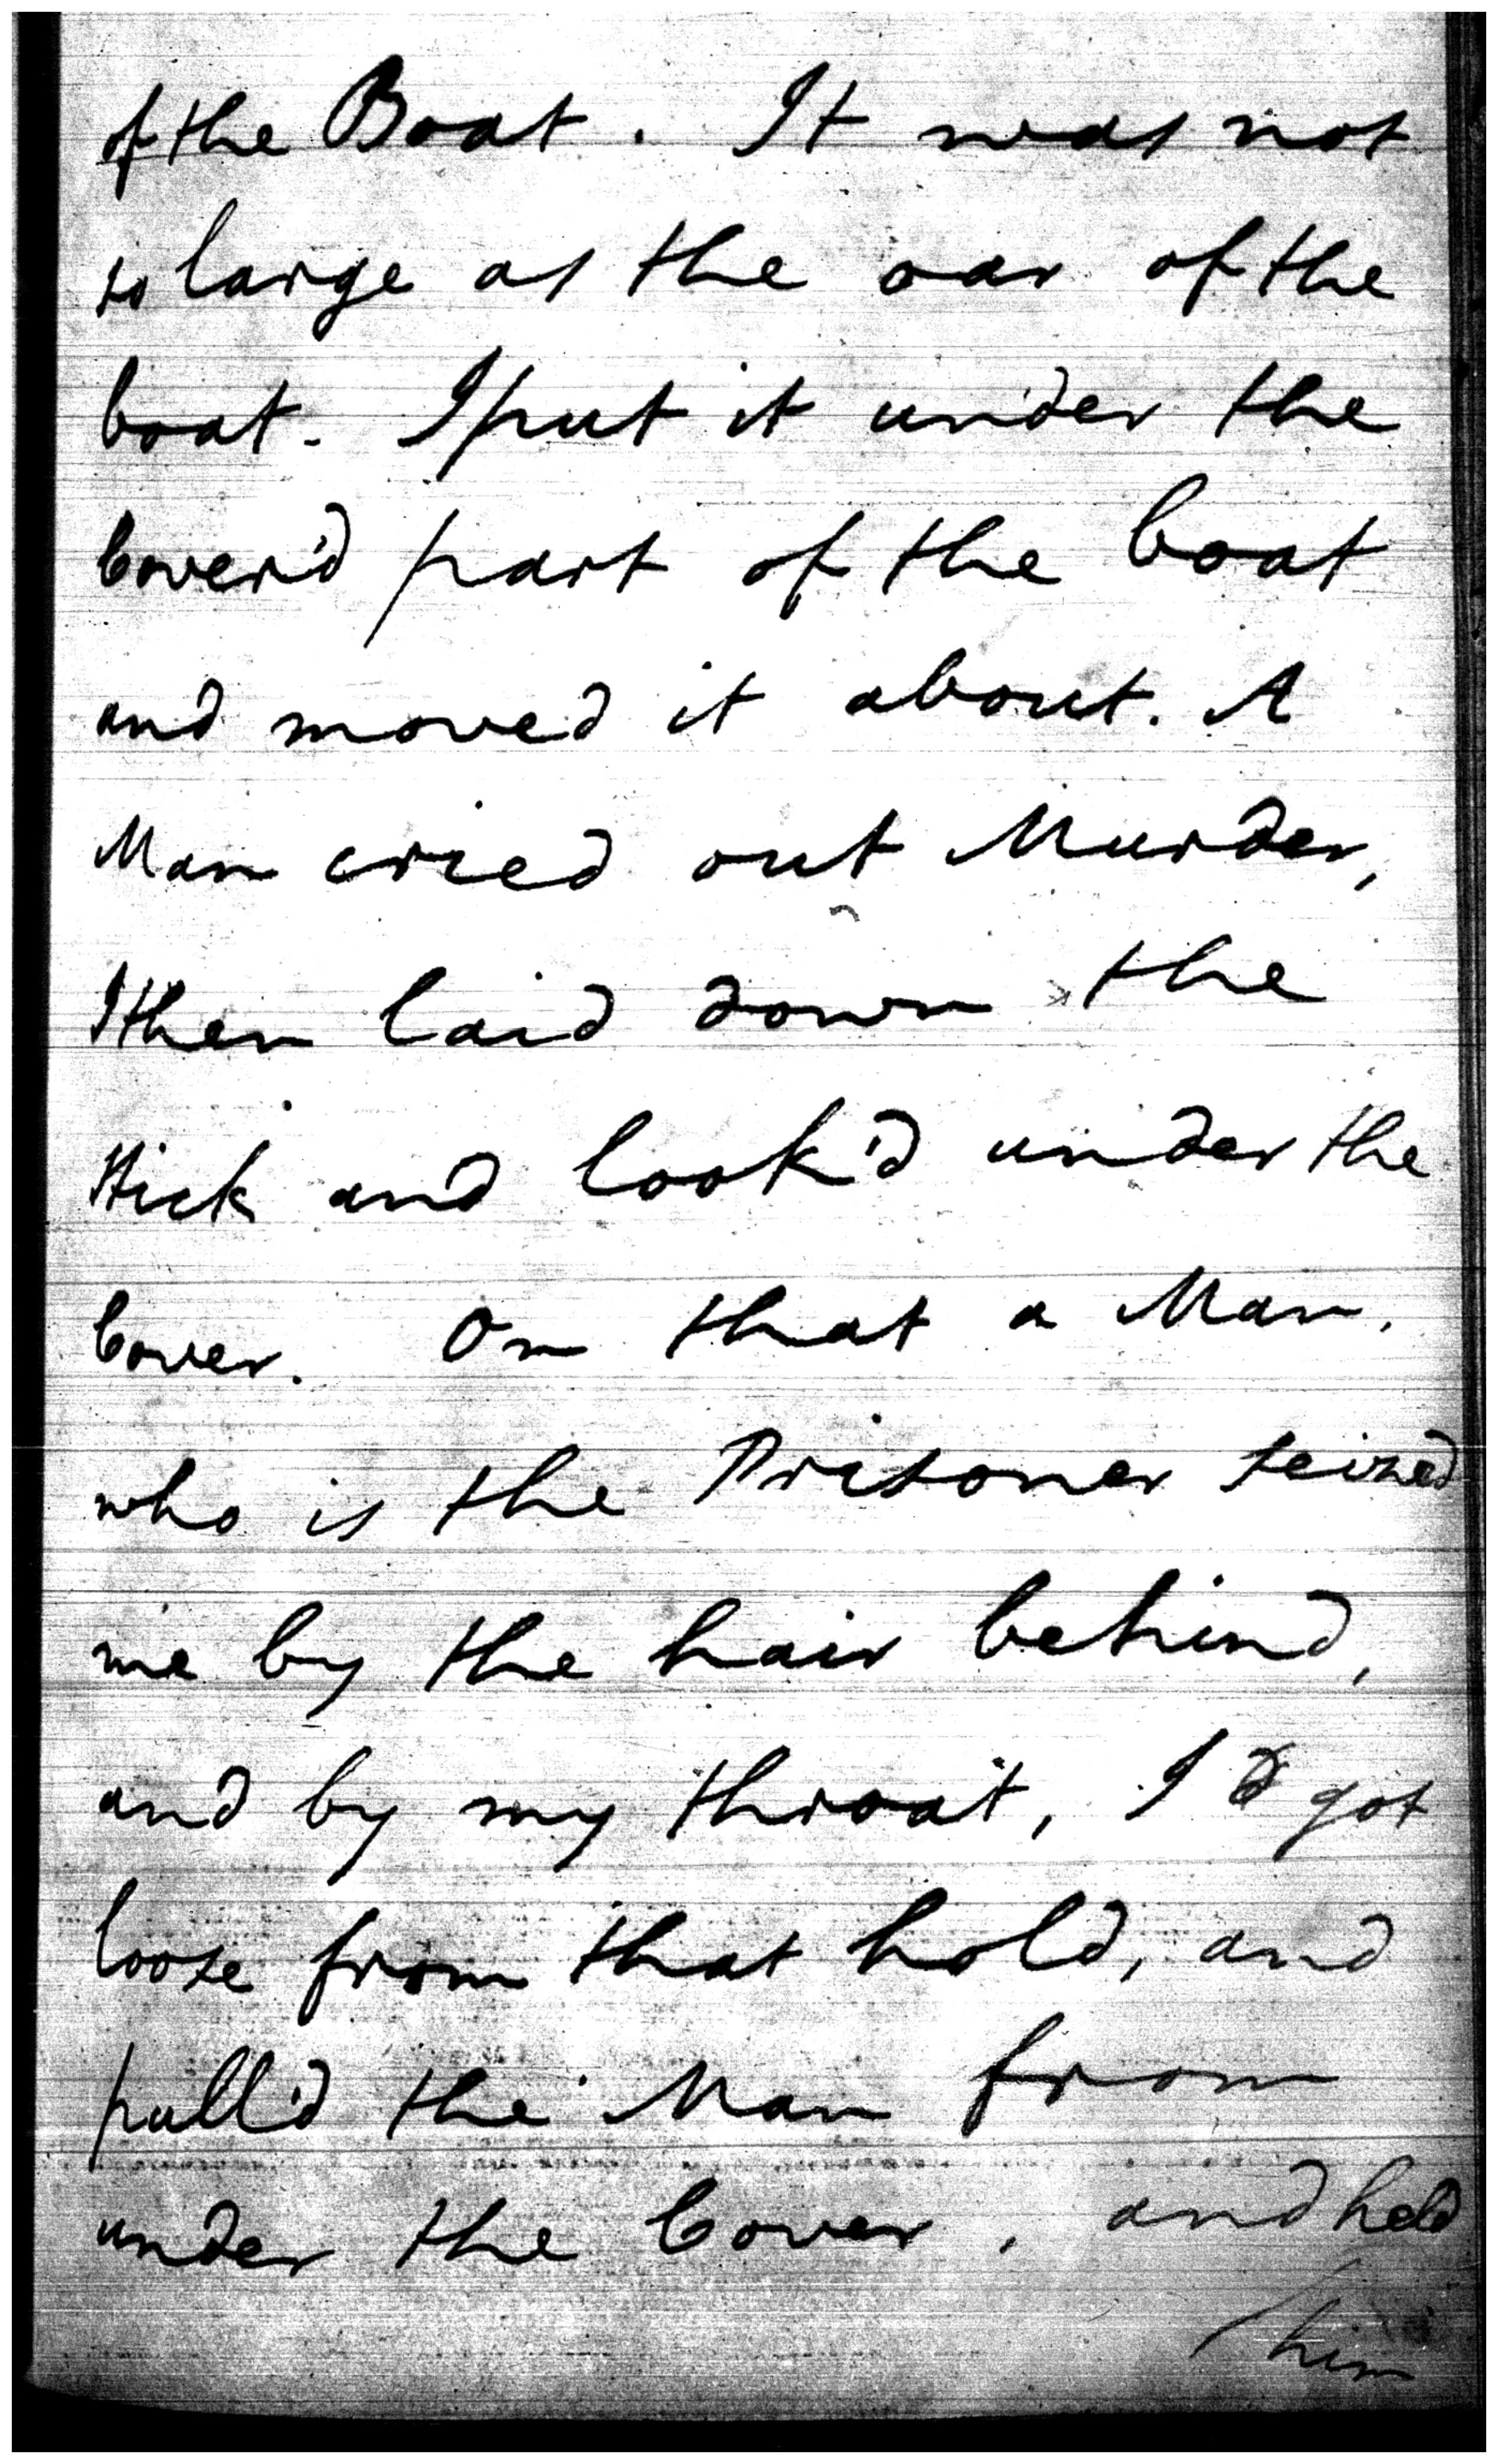 of the Boat. It was not
so large as the oar of the
boat. I put it under the
Cover'd part of the boat
and moved it about. A
Man cried out Murder,
I then laid down the
stick and look'd under the
Cover. On that a Man,
who is the Prisoner seized
me by the hair behind,
and by my throat, I got
loose from that hold, and
pull'd the Man from
under the Cover, and held
him